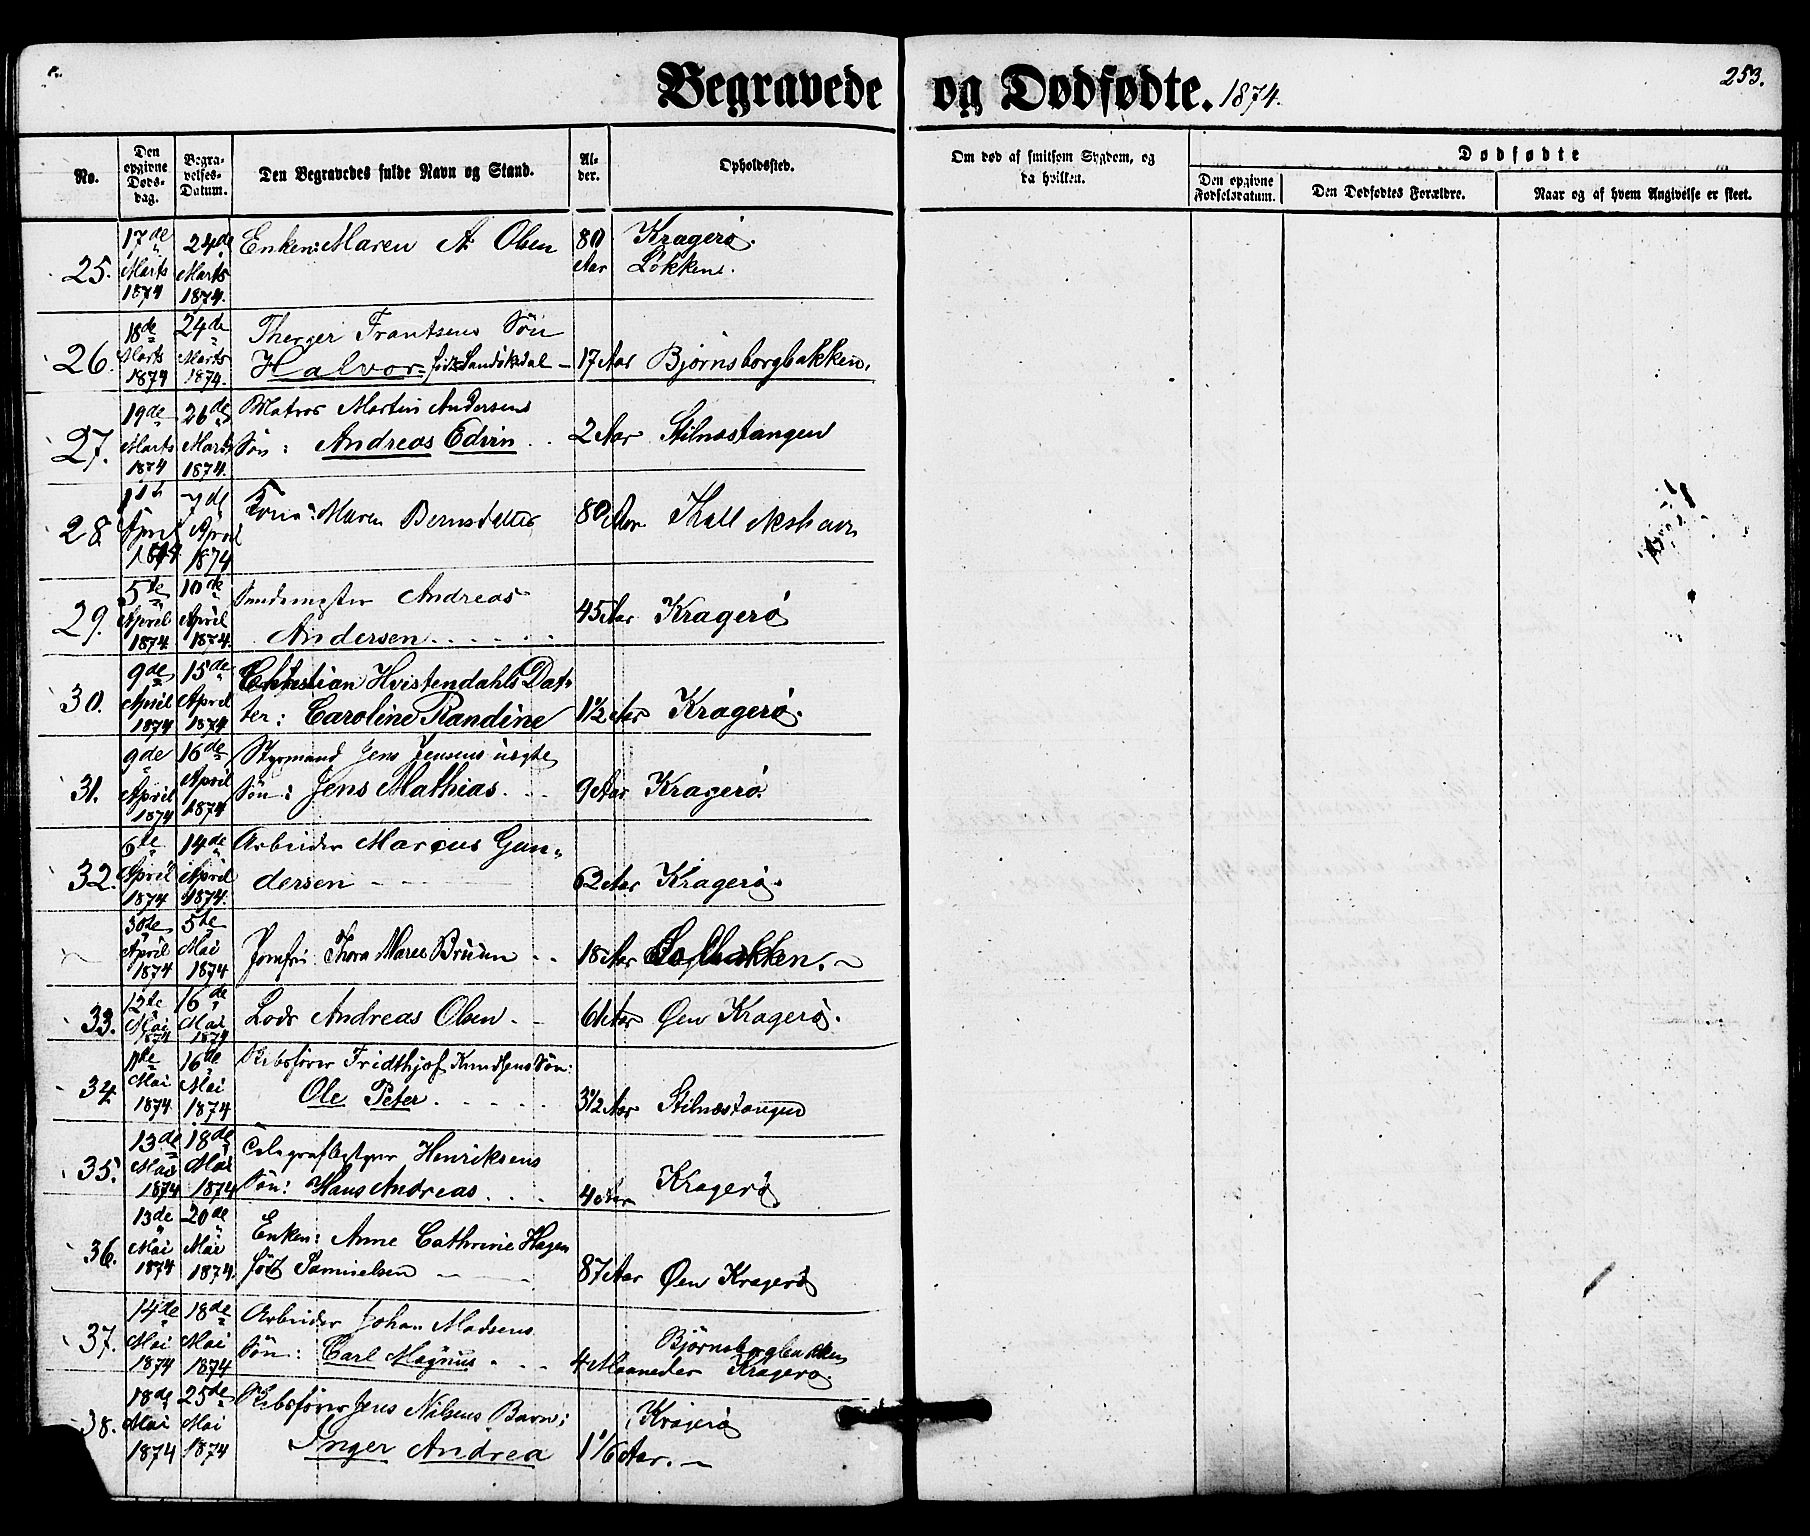 Begravede og Dødfødte. 1874.
253.
No.
Den opgivne Døds-dag.
Begra-velses-Datum.
Den Begravedes fulde Navn og Stand.
Al-der.
Opholdssted.
Om død af smitsom Sygdom, og da hvilken.
Dødfødte
Den opgivne Fødselsdatum.
Den Dødfødtes Forældre.
Naar og af hvem Angivelse er skeet.
25. 17de Marts 1874 24de Marts 1874. Enken: Maren A. Olsen 80 Aar Kragerø. Løkken.
26. 18de Marts 1874 24de Marts 1874. Frantsens Søn
Halvor født Sandøkdal – 17 Aar Bjørnsborgbakken.
27. 19de Marts 1874 26de Marts 1874. Matros Martin Andersens
Søn: Andreas Edvin . . 2 Aar Stilnæstangen
28 1ste April 1874 7de April 1874 Maren 80 Aar
29. 5te April 1874. 10de April 1874. Andreas
Andersen . . . . . . 45 Aar Kragerø
30. 9de April 1874 15de April 1874 Christian Hvistendahls Dat-
ter: Caroline Randine 1½ Aar Kragerø.
31. 9de April 1874 16de April 1874 Styrmand Jens Jensens ægte
Søn: Jens Mathias. . . 9 Aar Kragerø.
32. 6te April 1874 14de April 1874. Arbeider Marcus Gun-
dersen – – – 62 Aar Kragerø.
30te April 1874 5te Mai 1874 Jomfru Thora Maren Bruun . . 18 Aar
33. 12te Mai 1874 16de Mai 1874 Lods Andreas Olsen. – 61 Aar Øen Kragerø.
34 11de Mai 1874 16de Mai 1874 Skibsfører Fridthjof Knudsens Søn:
Ole Peter. . . . . . 3½ Aar Stilnæstangen
35. 13de Mai 1874 18de Mai 1874 Henriksens
Søn: Hans Andreas. . . 4 Aar Kragerø
36. 13de Mai 1874 20de Mai 1874. Enken: Anne Cathrine Hagen
født Samuelsen – – 87 Aar Øen Kragerø
37. 14de Mai 1874 18de Mai 1874 Arbeider Johan Madsens
Søn: Carl Magnus . . . 4 Maaneder Bjørnsborgbakken Kragerø.
38. 18de Mai 1874 25de Mai 1874 Skibsfører Jens Nilsens Barn:
Inger Andrea 1 1/6 Aar. – Kragerø